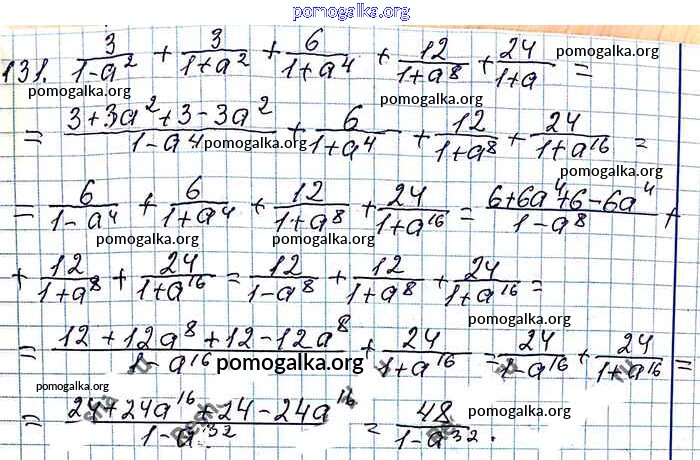 pomogalka.org
131. 3/(1-a²) + 3/(1+a²) + 6/(1+a⁴) + 12/(1+a⁸) + 24/(1+a) = pomogalka.org
pomogalka.org
= (3+3a²+3-3a²)/(1-a⁴) + 6/(1+a⁴) + 12/(1+a⁸) + 24/(1+a¹⁶) =
pomogalka.org
pomogalka.org
= 6/(1-a⁴) + 6/(1+a⁴) + 12/(1+a⁸) + 24/(1+a¹⁶) = (6+6a⁴+6-6a⁴)/(1-a⁸) +
pomogalka.org pomogalka.org
+ 12/(1+a⁸) + 24/(1+a¹⁶) = 12/(1-a⁸) + 12/(1+a⁸) + 24/(1+a¹⁶) =
pomogalka.org
= (12+12a⁸+12-12a⁸)/(1-a¹⁶) + 24/(1+a¹⁶) = 24/(1-a¹⁶) + 24/(1+a¹⁶) =
pomogalka.org
pomogalka.org
= (24+24a¹⁶+24-24a¹⁶)/(1-a³²) = 48/(1-a³²). pomogalka.org
pomogalka.org